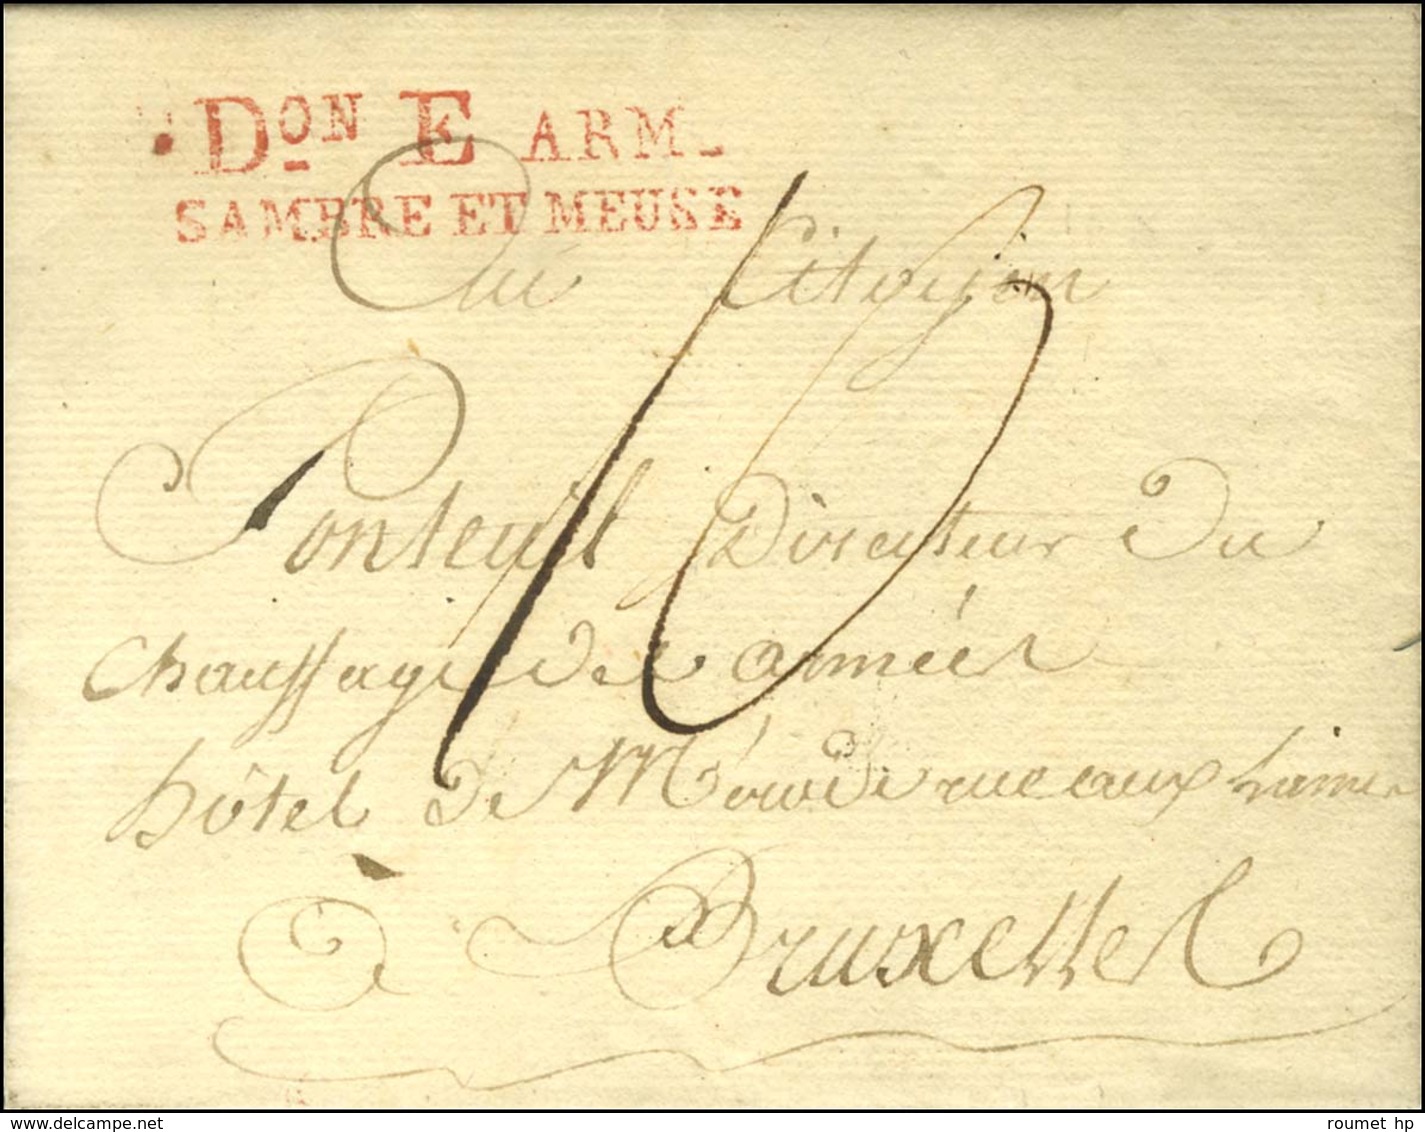 DON E ARM
SAMBRE ET MEUSE
Au Citoyen
10
Ponteuil Directeur Du
Chauffage des armées
hôtel de Mérode rue aux Laines
à Bruxelles
www.delcampe.net
roumet hp